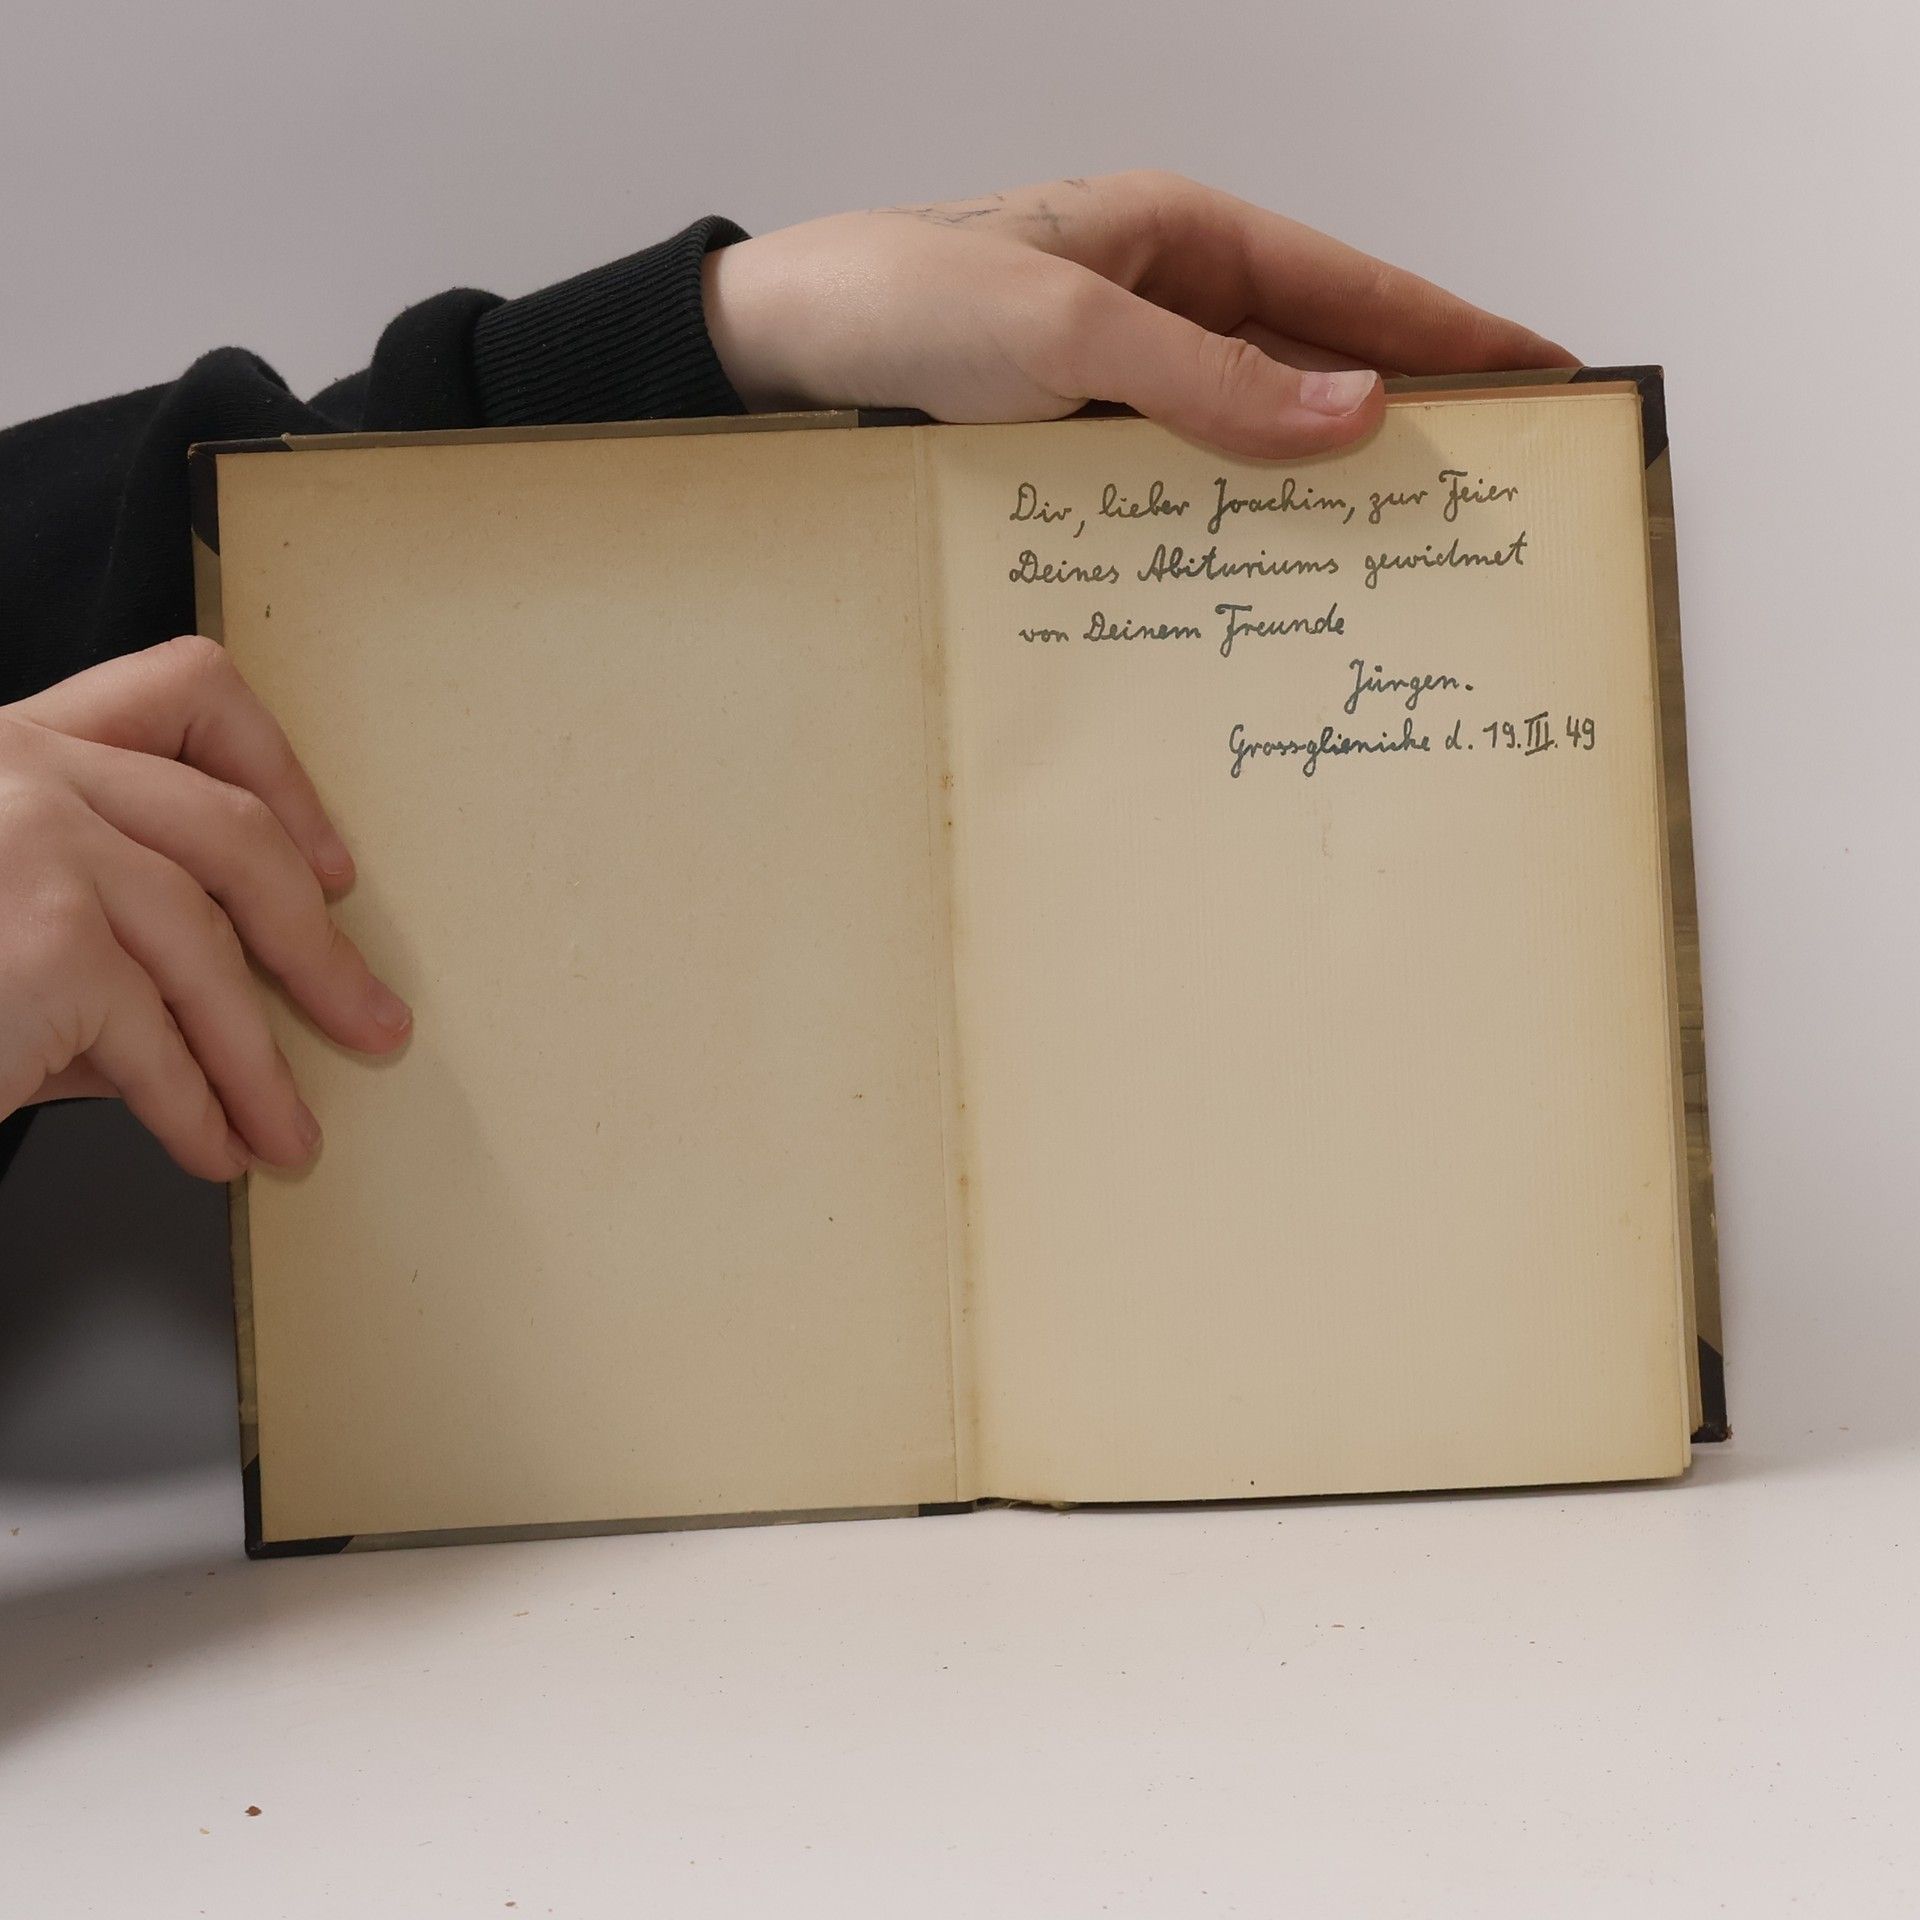 Dir, lieber Joachim, zur Feier
Deines Abituriums gewidmet
von Deinem Freunde
Jürgen.
Grossglienicke d. 19.III.49